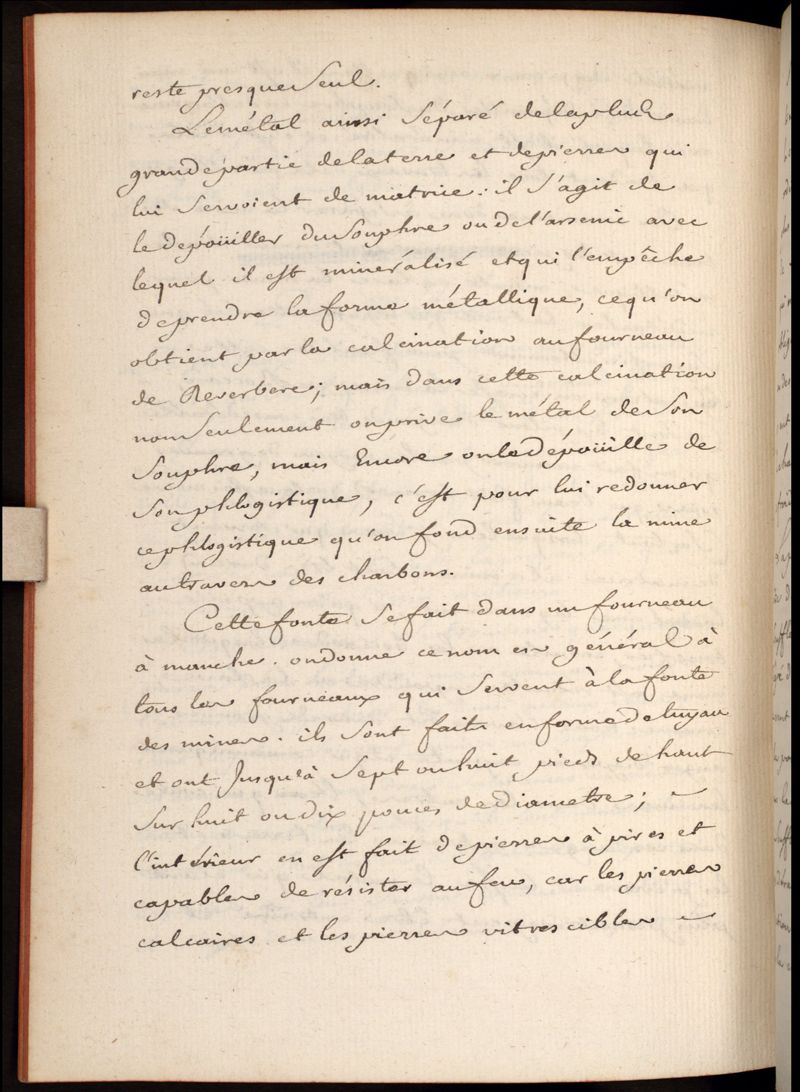 reste presque seul.
Le métal ainsi séparé de la plus
grande partie de la terre et de pierres qui
lui servoient de matrice: il s'agit de
le dépoüiller du souphre ou de l'arsenic avec
lequel il est minéralisé et qui l'empêche
de prendre la forme métallique, ce qu'on
obtient par la calcination au fourneau
de Reverbere; mais dans cette calcination
non seulement on prive le métal de son
souphre, mais Encore on le dépoüille de
son phlogistique, c'est pour lui redonner
ce phlogistique qu'on fond ensuite la mine
au travers des charbons.
Cette fonte se fait dans un fourneau
à manche. on donne ce nom en général à
tous les fourneaux qui servent à la fonte
des mines. ils sont faits en forme de tuyau
et ont Jusqu'à sept ou huit pieds de haut
sur huit ou dix pouces de Diametre;
l'intérieur en est fait de pierres à pires et
capables de résister au feu, car les pierres
calcaires et les pierres vitrescibles